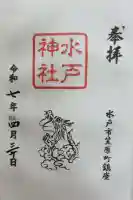 奉拝
水戸
神社
令和七年四月三日
水戸市笠原町鎮座